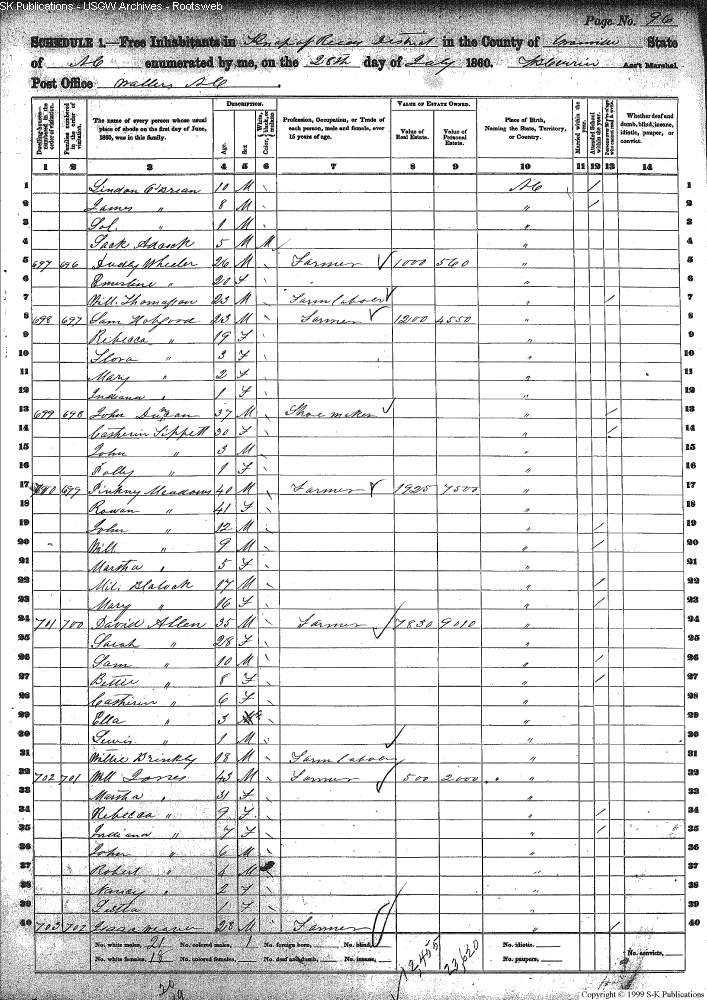 SK Publications - USGW Archives - Rootsweb
Page No. 96
SCHEDULE 1.—Free Inhabitants in Knap of Reeds District in the County of Granville State
of NC enumerated by me, on the 28th day of July 1860. Ass't Marshal.
Post Office Walters NC
Dwelling-houses—numbered in the order of visitation.
Families numbered in the order of visitation.
The name of every person whose usual place of abode on the first day of June, 1860, was in this family.
DESCRIPTION.
Age.
Sex
White, black, or mulatto
Color
Profession, Occupation, or Trade of each person, male and female, over 15 years of age.
VALUE OF ESTATE OWNED.
Value of Real Estate.
Value of Personal Estate.
Place of Birth, Naming the State, Territory, or Country.
Married within the year.
Attended School within the year.
Whether deaf and dumb, blind, insane, idiotic, pauper, or convict.
1 2 3 4 5 6 7 8 9 10 11 12 13 14
1 10 M \ NC / 1
2 James " 8 M \ " / 2
3 Sol. " 1 M \ " 3
4 5 M M " 4
5 697 696 Dudly Wheeler 26 M \ Farmer ✓ 1000 560 " 5
6 Emerline " 20 F \ " 6
7 Will Thomasson 23 M \ Farm labover ✓ " / 7
8 698 697 Sam Hobgood 23 M \ Farmer ✓ 1200 4550 " 8
9 Rebecca " 19 F \ " 9
10 Flora " 3 F \ " 10
11 Mary " 2 F \ " 11
12 Indiana " 1 F \ " 12
13 699 698 John 37 M \ Shoe maker ✓ " / 13
14 Catherin Tippett 30 F \ " / 14
15 John " 3 M \ " 15
16 Polly " 1 F \ " 16
17 699 Pinkny Meadows 40 M \ Farmer ✓ 1925 7500 " 17
18 Rowan " 41 F \ " 18
19 John " 12 M \ " / 19
20 Will " 9 M \ " / 20
21 Martha " 5 F \ " 21
22 Blalock 17 M \ " / 22
23 Mary " 16 F \ " / 23
24 701 700 David Allen 35 M \ Farmer ✓ 7830 9010 " 24
25 Sarah " 28 F \ " 25
26 Sam " 10 M \ " / 26
27 Bettie " 8 F \ " / 27
28 Catherin " 6 F \ " 28
29 Ella " 3 " 29
30 Lewis " 1 M \ " 30
31 Willie Brinkly 18 M \ Farm labover ✓ " 31
32 702 701 Will Jones 43 M \ Farmer ✓ 500 2000 " 32
33 Martha " 31 F \ " 33
34 Rebecca " 9 F \ " / 34
35 Indiana " 7 F \ " / 35
36 John " 6 M \ " 36
37 Robert " 4 M " 37
38 Nancy " 2 F \ " 38
39 1 F \ " 39
40 703 702 28 M \ Farmer " / 40
No. white males, 21 No. colored males, 1 No. foreign born, No. blind, No. idiotic,
No. white females, 18 No. colored females, No. deaf and dumb, No. insane, No. paupers, No. convicts,
12,455 23,620
Copyright © 1999 S-K Publications